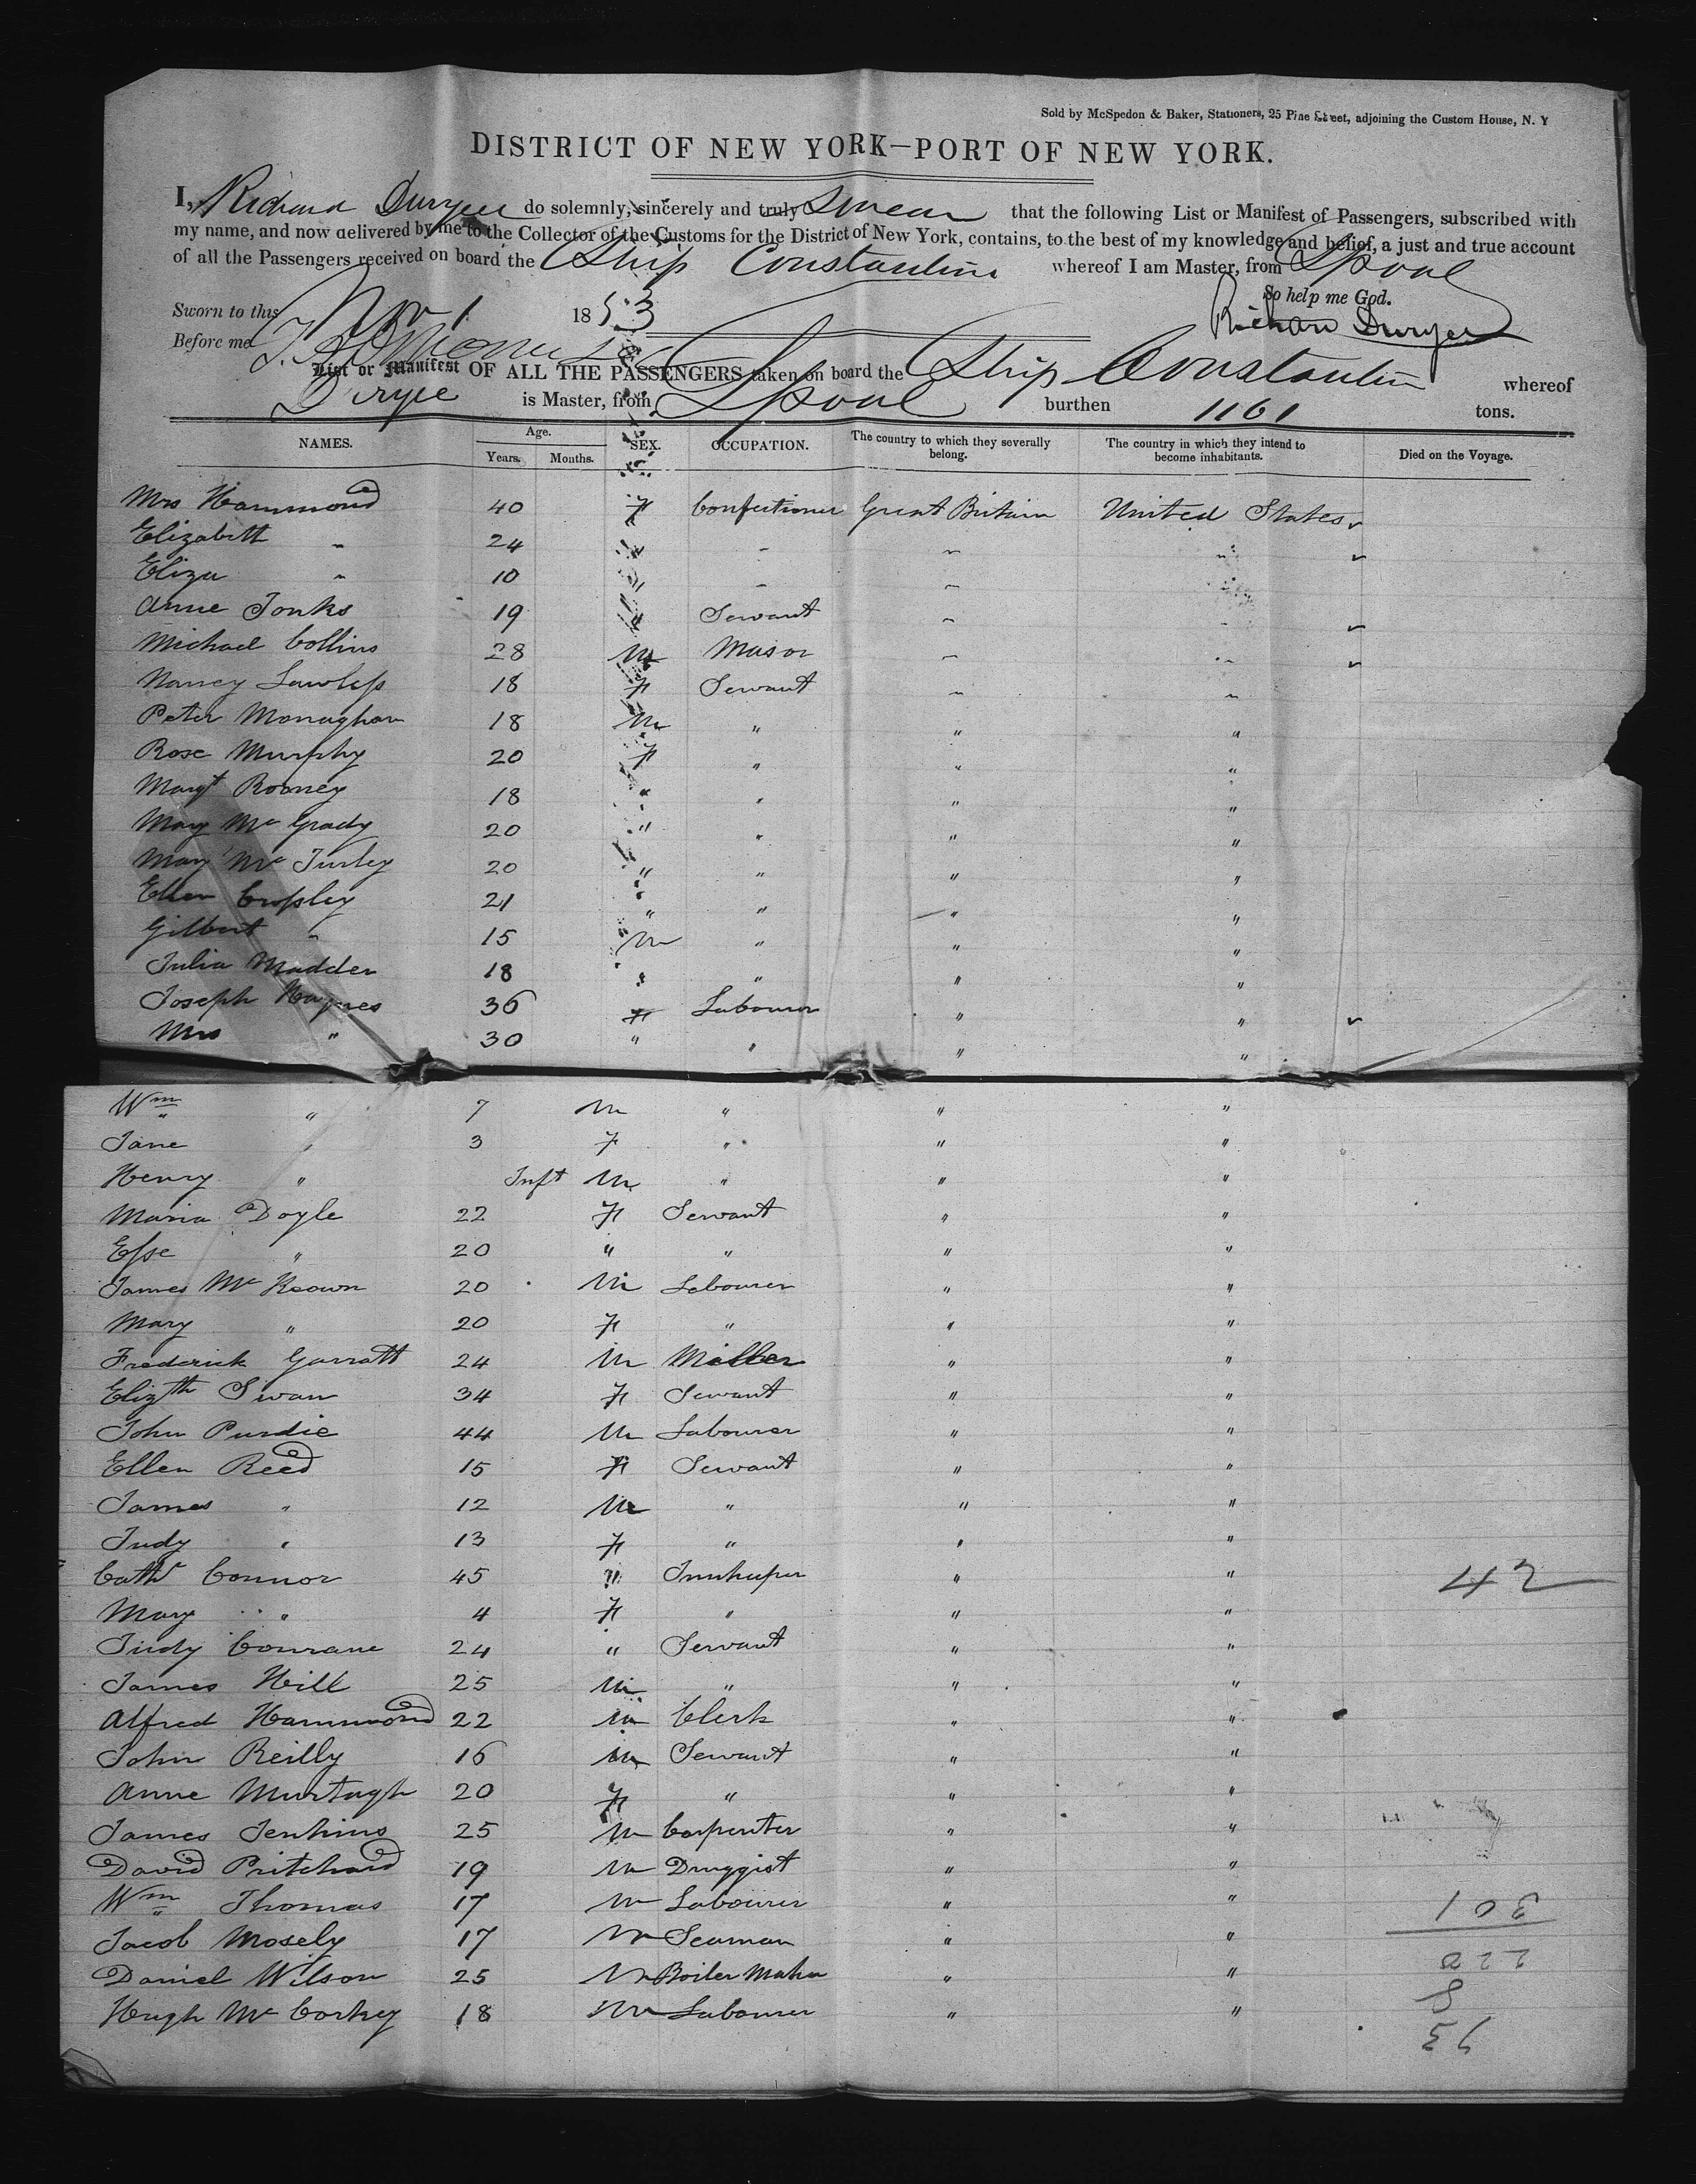 Sold by McSpedon & Baker, Stationers, 25 Pine Street, adjoining the Custom House, N. Y
DISTRICT OF NEW YORK—PORT OF NEW YORK.
I, Richard Duryee do solemnly, sincerely and truly Swear that the following List or Manifest of Passengers, subscribed with
my name, and now delivered by me to the Collector of the Customs for the District of New York, contains, to the best of my knowledge and belief, a just and true account
of all the Passengers received on board the Ship Constantine whereof I am Master, from Lpool
So help me God.
Sworn to this Nov 1 1853 Richard Duryee
Before me
List or Manifest OF ALL THE PASSENGERS taken on board the Ship Constantine whereof
Duryee is Master, from Lpool burthen 1161 tons.
NAMES. Age. Years. Months. SEX. OCCUPATION. The country to which they severally belong. The country in which they intend to become inhabitants. Died on the Voyage.
Mrs Hammond 40 F Confectioner Great Britain United States
Elizabeth " 24 " " " "
Eliza " 10 " " " "
Anne Tonks 19 " Servant " "
Michael Collins 28 M Mason " "
Nancy Lawless 18 F Servant " "
Peter Monaghan 18 M " " "
Rose Murphy 20 F " " "
Margt Rooney 18 " " " "
Mary Mc Grady 20 " " " "
Mary Mc Turley 20 " " " "
Ellen Crossley 21 " " " "
Gilbert " 15 M " " "
Julia Madden 18 " " " "
Joseph Haynes 36 F Labourer " "
Mrs " 30 " " " "
Wm " 7 M " " "
Jane " 3 F " " "
Henry " Inft M " " "
Maria Doyle 22 F Servant " "
Esse " 20 " " " "
James Mc Keown 20 M Labourer " "
Mary " 20 F " " "
Frederick Garratt 24 M Miller " "
Elizth Swan 34 F Servant " "
John Purdie 44 M Labourer " "
Ellen Reed 15 F Servant " "
James " 12 M " " "
Judy " 13 F " " "
Cathe Connor 45 " Innkeeper " " 42
Mary " 4 F " " "
Judy Conrane 24 " Servant " "
James Hill 25 M " " "
Alfred Hammond 22 M Clerk " "
John Reilly 16 M Servant " "
Anne Murtagh 20 F " " "
James Jenkins 25 M Carpenter " "
David Pritchard 19 M Druggist " "
Wm Thomas 17 M Labourer " " 301
Jacob Mosely 17 M Seaman " "
Daniel Wilson 25 M Boiler Maker " "
Hugh Mc Corkey 18 M Labourer " "